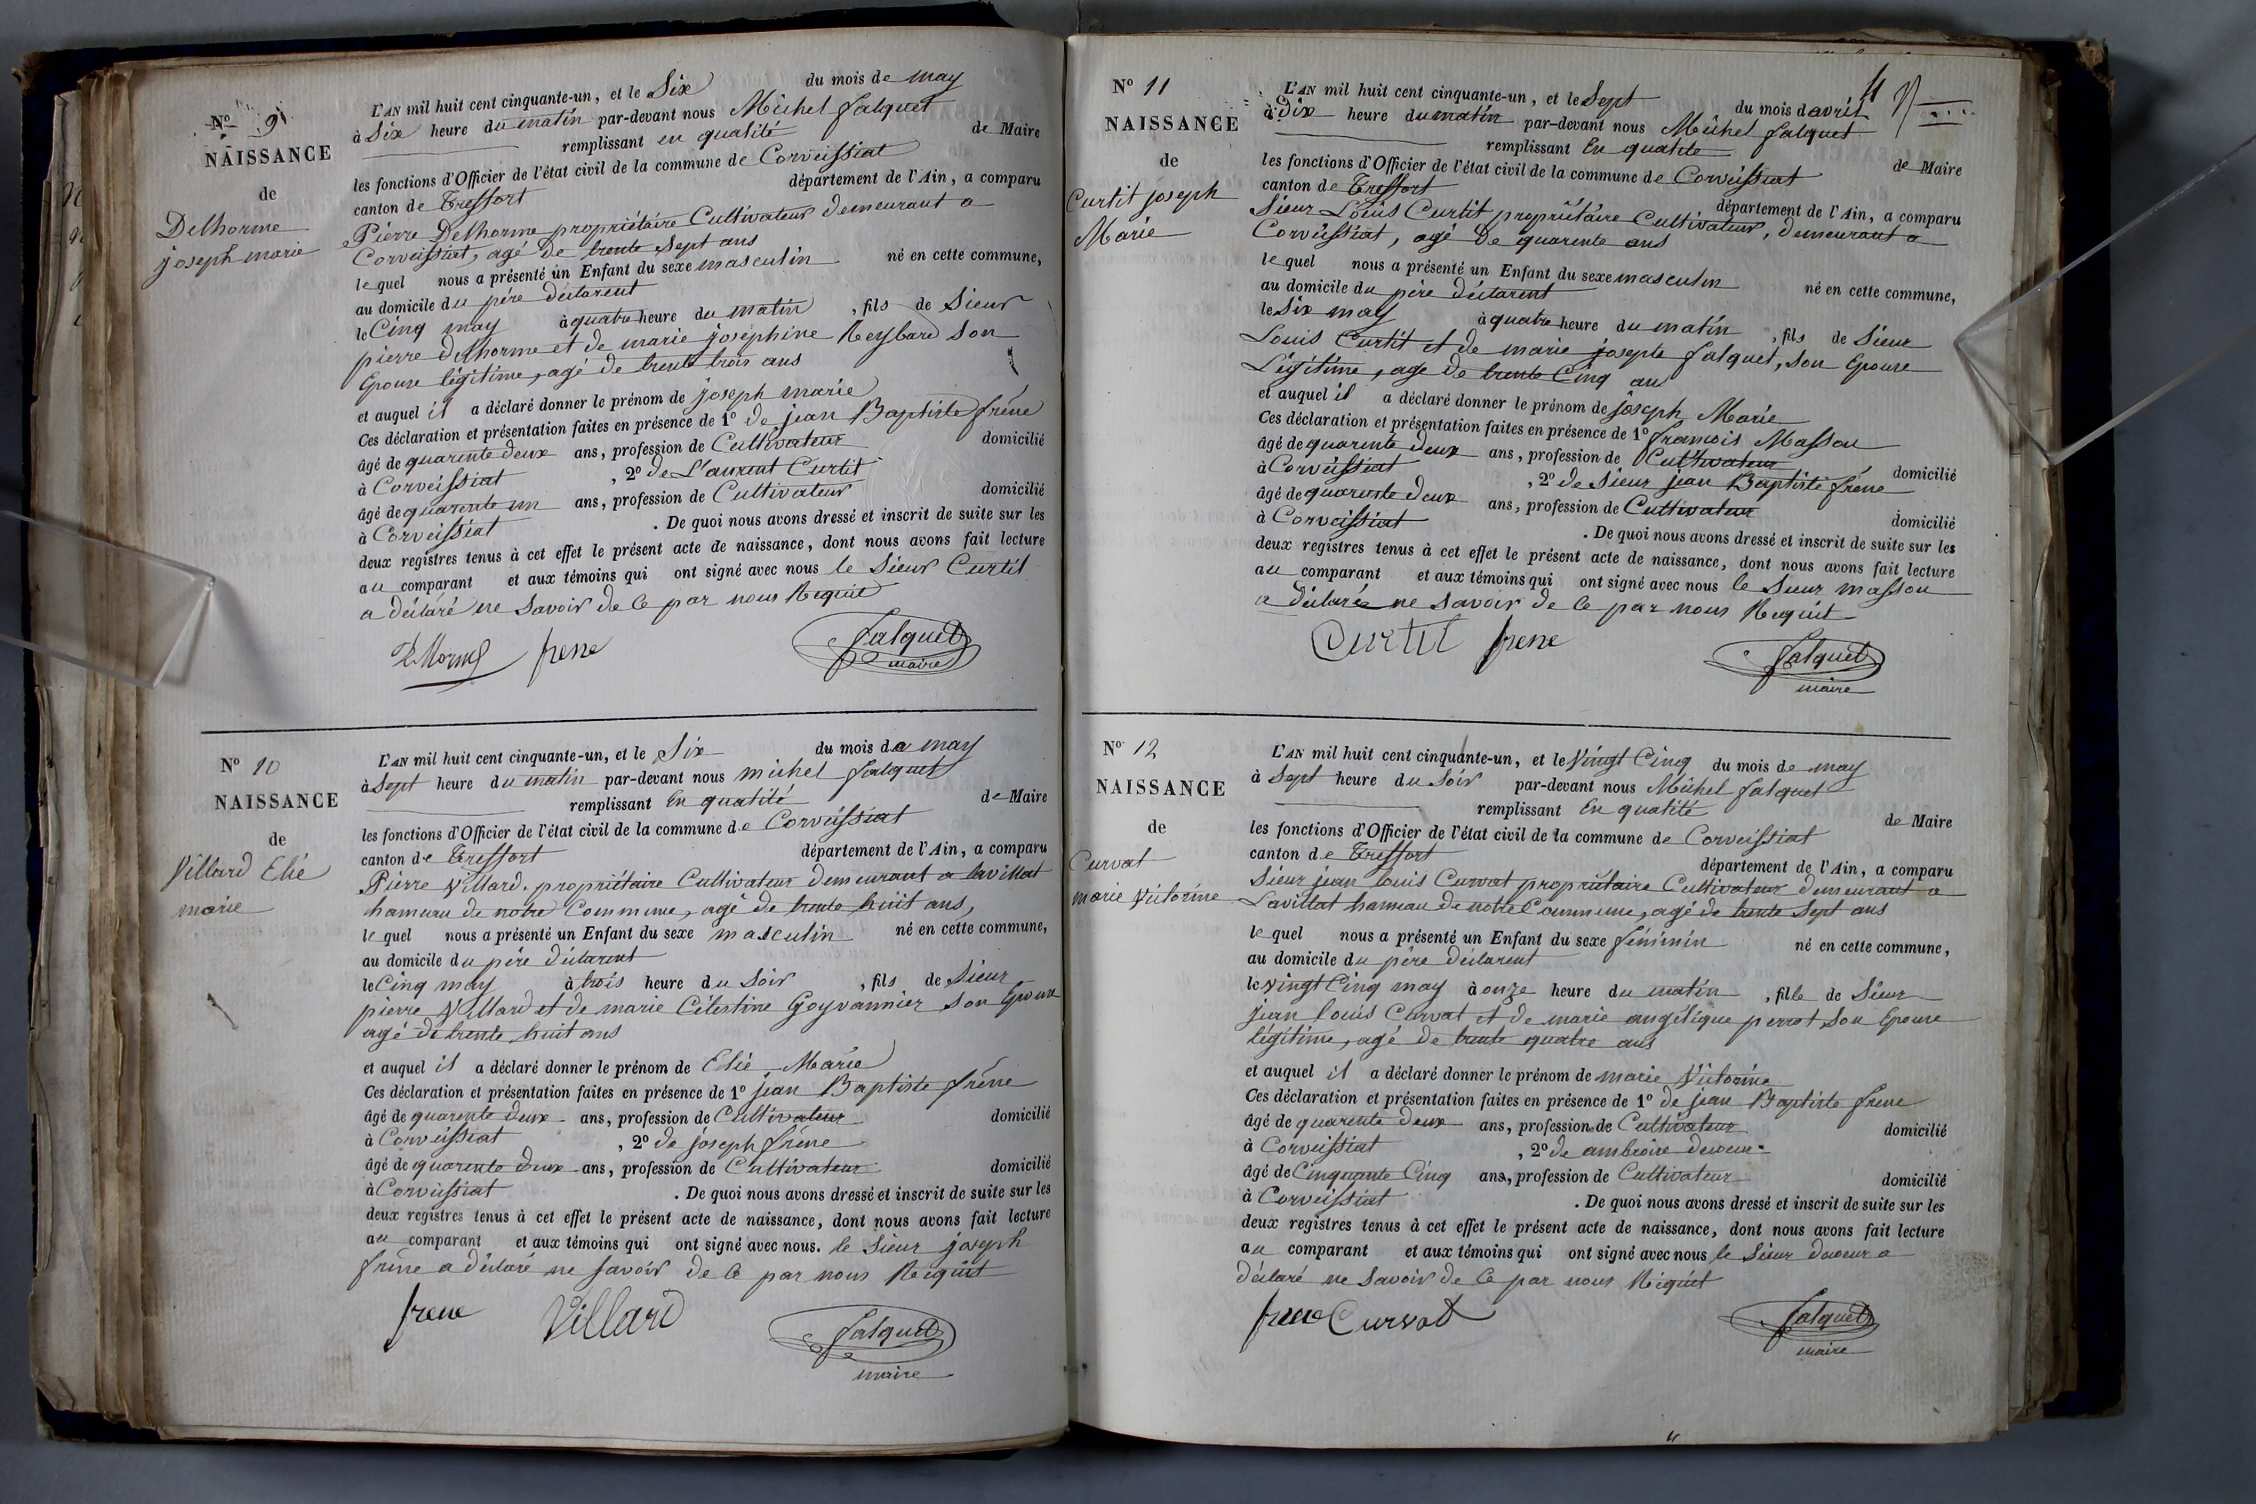 N° 9
NAISSANCE
de
Delhorme
joseph marie
L'AN mil huit cent cinquante-un, et le Six du mois de may
à Six heure du matin par-devant nous Michel falquet
remplissant en qualité de Maire
les fonctions d'Officier de l'état civil de la commune de Corveissiat
canton de Treffort département de l'Ain, a comparu
Pierre Delhorme propriétaire Cultivateur demeurant a
Corveissiat, agé de trente Sept ans
le quel nous a présenté un Enfant du sexe masculin né en cette commune,
au domicile du père déclarent
le Cinq may à quatre heure du matin, fils de Sieur
pierre delhorme et de marie joséphine Reybard son
Epouse légitime, agé de trente trois ans
et auquel il a déclaré donner le prénom de joseph marie
Ces déclaration et présentation faites en présence de 1° de jean Baptiste frène
âgé de quarente deux ans, profession de Cultivateur domicilié
à Corveissiat, 2° de L'aurent Curtit
âgé de quarente un ans, profession de Cultivateur domicilié
à Corveissiat. De quoi nous avons dressé et inscrit de suite sur les
deux registres tenus à cet effet le présent acte de naissance, dont nous avons fait lecture
au comparant et aux témoins qui ont signé avec nous le Sieur Curtit
a déclaré ne Savoir de Ce par nous Requit
frene falquet
maire
N° 10
NAISSANCE
de
Villard Elie
marie
L'AN mil huit cent cinquante-un, et le Six du mois de may
à Sept heure du matin par-devant nous michel falquet
remplissant En qualité de Maire
les fonctions d'Officier de l'état civil de la commune de Corveissiat
canton de Treffort département de l'Ain, a comparu
Pierre Villard. propriétaire Cultivateur demeurant a lavillat
hameau de notre Commune, agé de trente huit ans,
le quel nous a présenté un Enfant du sexe masculin né en cette commune,
au domicile du père déclarent
le Cinq may à trois heure du Soir, fils de Sieur
pierre Villard et de marie Célestine Goyvannier son Epouse
agé de trente huit ans
et auquel il a déclaré donner le prénom de Elié Marie
Ces déclaration et présentation faites en présence de 1° jean Baptiste frène
âgé de quarente deux ans, profession de Cultivateur domicilié
à Corveissiat, 2° de joseph frène
âgé de quarente deux ans, profession de Cultivateur domicilié
à Corveissiat. De quoi nous avons dressé et inscrit de suite sur les
deux registres tenus à cet effet le présent acte de naissance, dont nous avons fait lecture
au comparant et aux témoins qui ont signé avec nous. le Sieur joseph
frène a déclaré ne savoir de Ce par nous Requit
frene Villard falquet
maire
N° 11
NAISSANCE
de
Curtit joseph
Marie
11
L'AN mil huit cent cinquante-un, et le Sept du mois davril
à Dix heure du matin par-devant nous Michel falquet
remplissant En qualité de Maire
les fonctions d'Officier de l'état civil de la commune de Corveissiat
canton de Treffort département de l'Ain, a comparu
Sieur Louis Curtit propriétaire Cultivateur, demeurant a
Corveissiat, agé De quarente ans
le quel nous a présenté un Enfant du sexe masculin né en cette commune,
au domicile du père déclarent
le Six may à quatre heure du matin, fils de Sieur
Louis Curtit et de marie josepte falquet, son Epouse
Légitime, age de trente Cinq ans
et auquel il a déclaré donner le prénom de joseph Marie
Ces déclaration et présentation faites en présence de 1° francois Masson
âgé de quarente deux ans, profession de Cultivateur domicilié
à Corveissiat, 2° de Sieur jean Baptiste frene
âgé de quarente deux ans, profession de Cultivateur domicilié
à Corveissiat. De quoi nous avons dressé et inscrit de suite sur les
deux registres tenus à cet effet le présent acte de naissance, dont nous avons fait lecture
au comparant et aux témoins qui ont signé avec nous le Sieur masson
a déclarée ne savoir de Ce par nous Requit
Curtil frene falquet
maire
N° 12
NAISSANCE
de
Curvat
marie Victorine
L'AN mil huit cent cinquante-un, et le Vingt Cinq du mois de may
à Sept heure du Soir par-devant nous Michel falquet
remplissant En qualité de Maire
les fonctions d'Officier de l'état civil de la commune de Corveissiat
canton de Treffort département de l'Ain, a comparu
Sieur jean louis Curvat propriétaire Cultivateur demeurant a
Lavillat hameau de notre Commune, agé de trente Sept ans
le quel nous a présenté un Enfant du sexe féminin né en cette commune,
au domicile du père déclarent
le vingt Cinq may à onze heure du matin, fille de Sieur
jean louis Curvat et de marie angélique perrot son Epouse
légitime, agé de trente quatre ans
et auquel il a déclaré donner le prénom de marie Victorine
Ces déclaration et présentation faites en présence de 1° de jean Baptiste frene
âgé de quarente deux ans, profession de Cultivateur domicilié
à Corveissiat, 2° de ambroise
âgé de Cinquante Cinq ans, profession de Cultivateur domicilié
à Corveissiat. De quoi nous avons dressé et inscrit de suite sur les
deux registres tenus à cet effet le présent acte de naissance, dont nous avons fait lecture
au comparant et aux témoins qui ont signé avec nous le Sieur a
déclaré ne savoir de Ce par nous Requit
frene Curvat falquet
maire